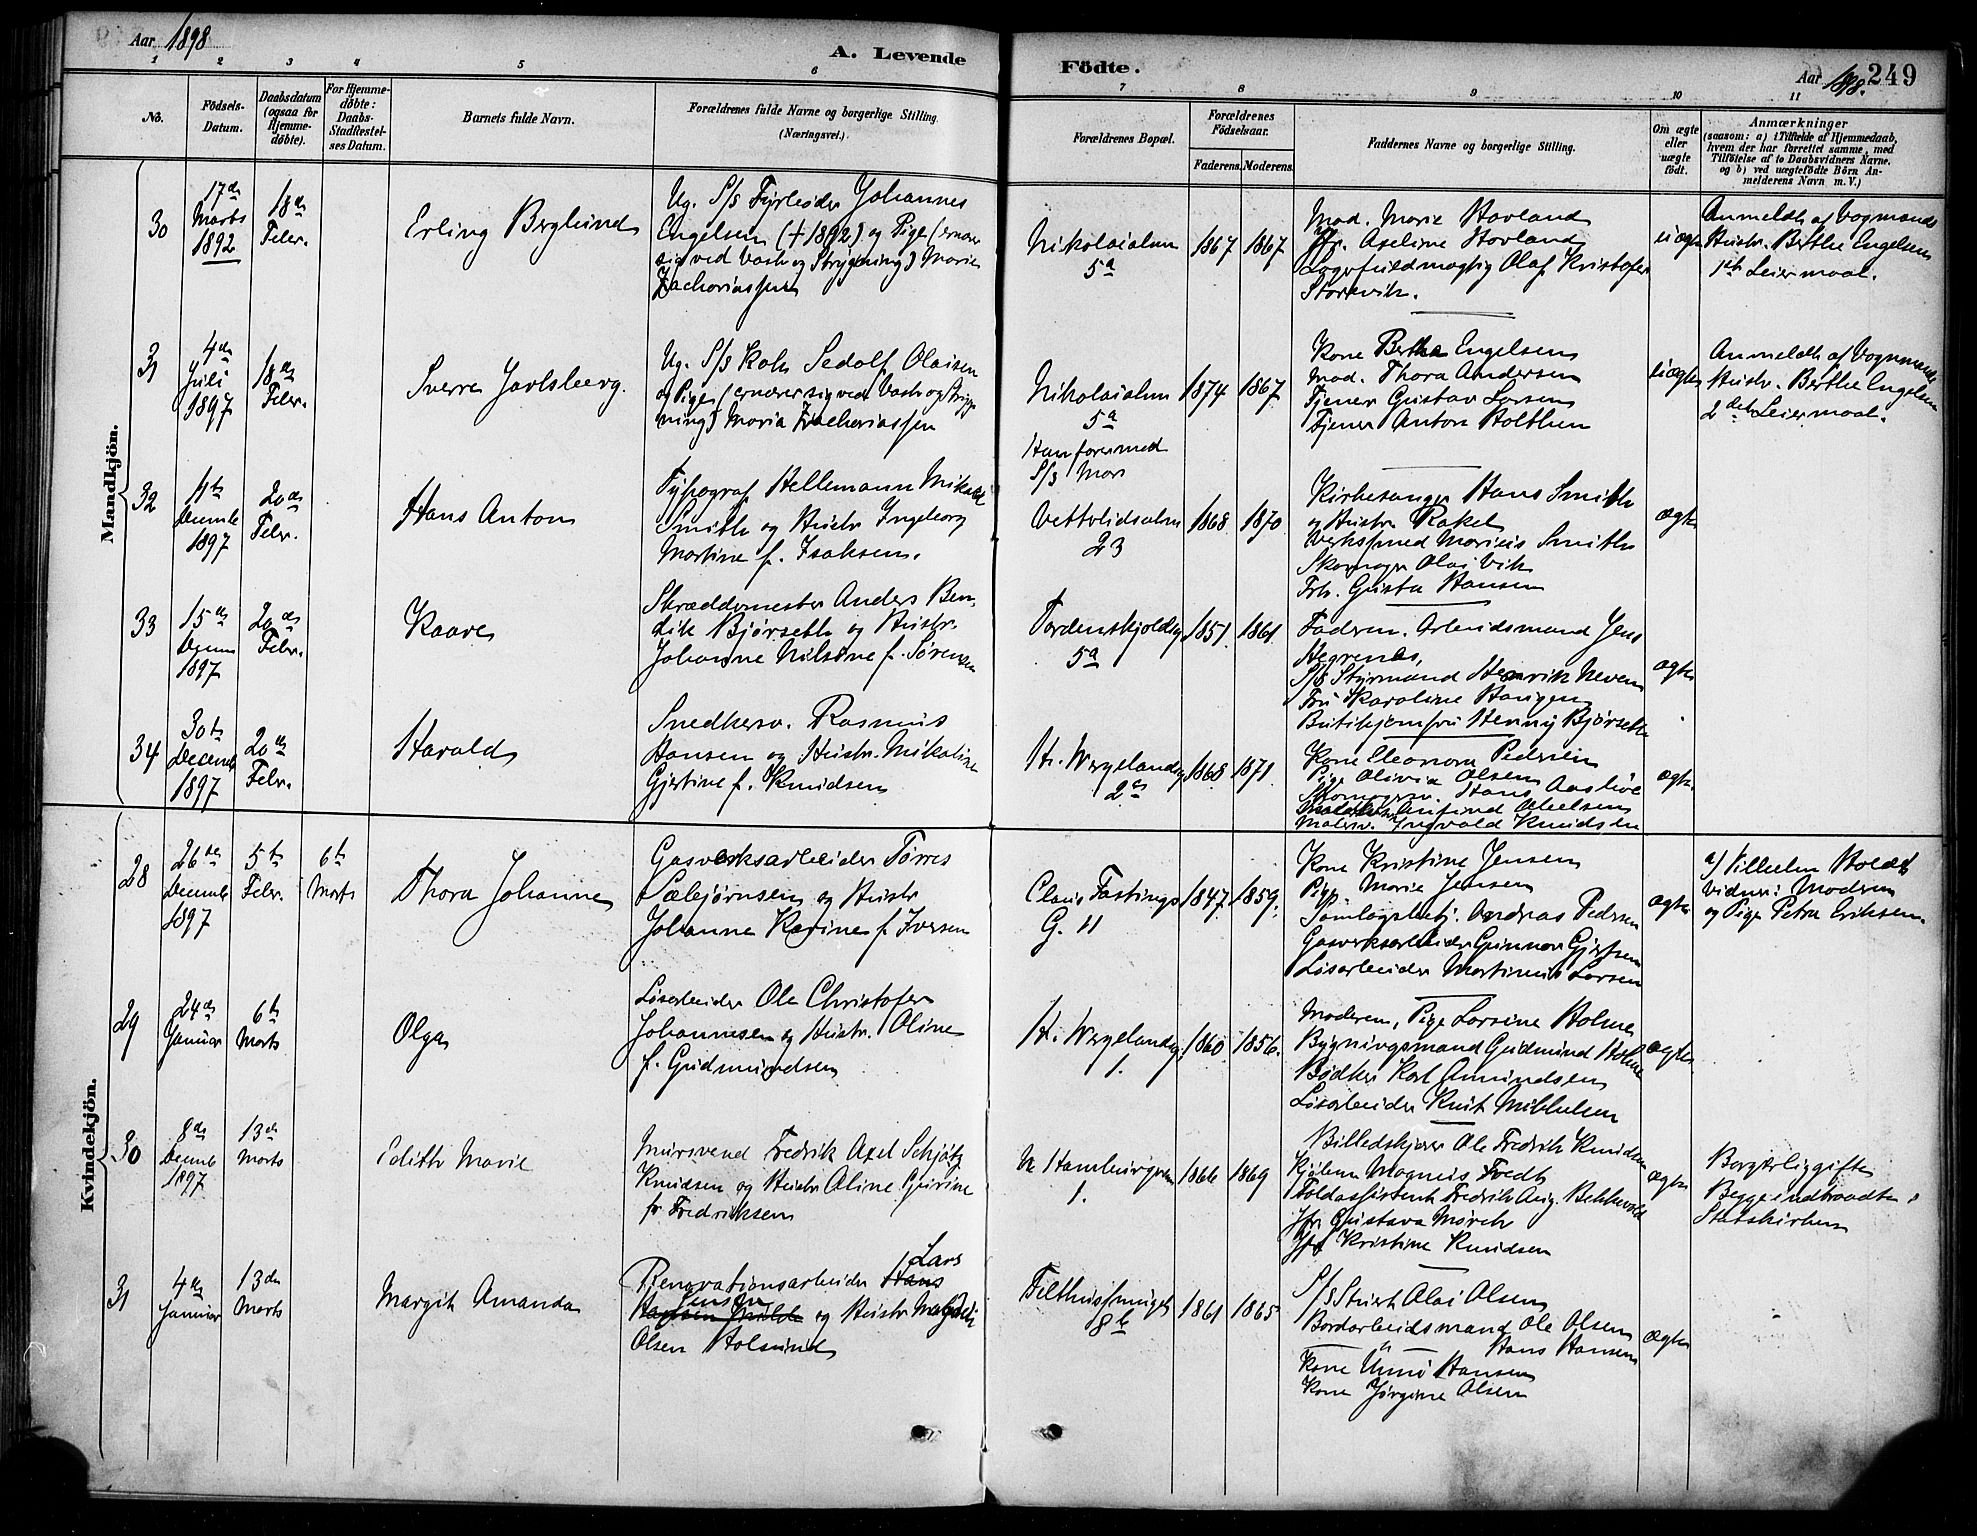 Aar 1898
A. Levende
Födte.
Aar 1898.
249
1 2 3 4 5 6 7 8 9 10 11
No.
Födsels-
Datum.
Daabsdatum
(ogsaa for
Hjemme-
döbte).
For Hjemme-
döbte:
Daabs-
Stadfæstel-
ses Datum.
Barnets fulde Navn.
Forældrenes fulde Navne og borgerlige Stilling
(Næringsvei.)
Forældrenes Bopæl.
Forældrenes
Födselsaar.
Faderens. Moderens.
Faddernes Navne og borgerlige Stilling.
Om ægte
eller
uægte
födt.
Anmærkninger
(saasom: a) i Tilfælde af Hjemmedaab,
hvem der har forrettet samme, med
Tilföielse af to Daabsvidners Navne.
og b) ved uægtefödte Börn An-
melderens Navn m. V.)
Mandkjön.
30
17de
Marts
1892
18de
Febr.
Erling Berglund
Ug. S/s Fyrbøder Johannes
Engelsen (+1892) og Pige (ernær
sig ved Vask og Strygning) Marie
Zachariassen
Nikolaialm
5a
1867 1867
Mad. Marie Hovland
Jfr. Axeline Hovland
Lagerfuldmægtig Olaf Kristofer
Storevik.
uægte
Anmeldt af Vognmands
Hustr. Berthe Engelsen
1ste Leiermaal.
31
4de
Juli
1897
18de
Febr.
Sverre Jarlsberg.
Ug. S/s Kok Sedolf Olaisen
og Pige (ernærer sig ved Vask og Stryg
ning) Maria Zachariassen
Nikolaialm
5a
Han farer med
S/s Mars
1874 1867
Kone Berthe Engelsen
Mad. Thora Andersen
Tjener Gustav Larsen
Tjener Anton Holthen
uægte
Anmeldt af Vognmands
Hustr. Berthe Engelsen
2det Leiermaal.
32
4de
Decemb
1897
20de
Febr.
Hans Anton
Typograf Hellemann Mikal
Smith og Hustr Ingeborg
Martine f. Isaksen.
Vetrlidsalm
23
1868 1870
Kirkesanger Hans Smith
og Hustru Rakel
Verksmed Marius Smith
Skomager Olai Vik
Frk. Gusta Hansen
ægte
33
15de
Decem
1897
20de
Febr.
Kaare
Skræddermester Anders Ben
dik Bjørseth og Hustr.
Johanne Nilsine f. Sørensen
Tordenskjoldsg
5a
1851 1861
Faderen. Arbeidsmand Jens
Hegrenæs,
S/s Styrmand Henrik Neven
Fru Karoline Haugen
Butikjomfru Henny Bjørseth
ægte
34
30te
Decemb
1897
20de
Febr.
Harald
Snedkersv. Rasmus
Hansen og Hustr. Mikaline
Gjertine f. Knudsen
H. Wergelandsg
2a
1868 1871
Kone Eleonora Pedersen
Pige Olivia Olsen
Skomagersv. Hans Aasböe
Malersv. Ingvald Knudsen
ægte
Kvindekjön.
28
26de
Decemb
1897
5te
Febr.
6te
Marts
Thora Johanne
Gasverksarbeider Tørres
Sæbjørnsen og Hustr
Johanne Karine f. Iversen
Claus Fastings
G. 11
1847 1859.
Kone Kristine Jensen
Pige Marie Jensen
Tømlagsbetj. Andreas Pedersen
Gasverksarbeider Gunnar Gjertsen
Løsarbeider Martinus Larsen
ægte
a) Vilhelm Holdt
Vidner: Moderen
og Pige Petra Eriksen.
29
24de
Januar
6te
Marts
Olga
Løsarbeider Ole Christofer
Johannesen og Hustr. Oline
f. Gudmundsen
H. Wergelandsg.
1.
1860 1856.
Moderen, Pige Larsine Holme
Bygningsmand Gudmund Holme
Bødker Karl Amundsen
Løsarbeider Knut Mikkelsen
ægte
30
8de
Decemb
1897
13de
Marts
Edith Marie
Mursvend Fredrik Axel Schjøtz
Knudsen og Hustr Aline Gurine
f. Fredriksen
N Hamburgsm
1.
1866 1869
Billedskjærer Ole Fredrik Knudsen
Kjøbm Magnus Tvedt
Toldassistent Fredrik Aug. Bekkevold
Jfr Gustava Mørch
Jfr Kristine Knudsen
ægte
Borgerliggifte
Begge indtraadte i
Statskirken
31
4de
Januar
13de
Marts
Margit Amanda
Lars
Renovationsarbeider Hans
Jensen
og Hustr Magdeli
Olsen Holsund
Filthussmuget
8b
1861 1865
S/s Stuert Olai Olsen
Bordarbeidsmand Ole Olsen
— " — Hans Hansen
Kone Unni Hansen
Kone Jørgine Olsen
ægte